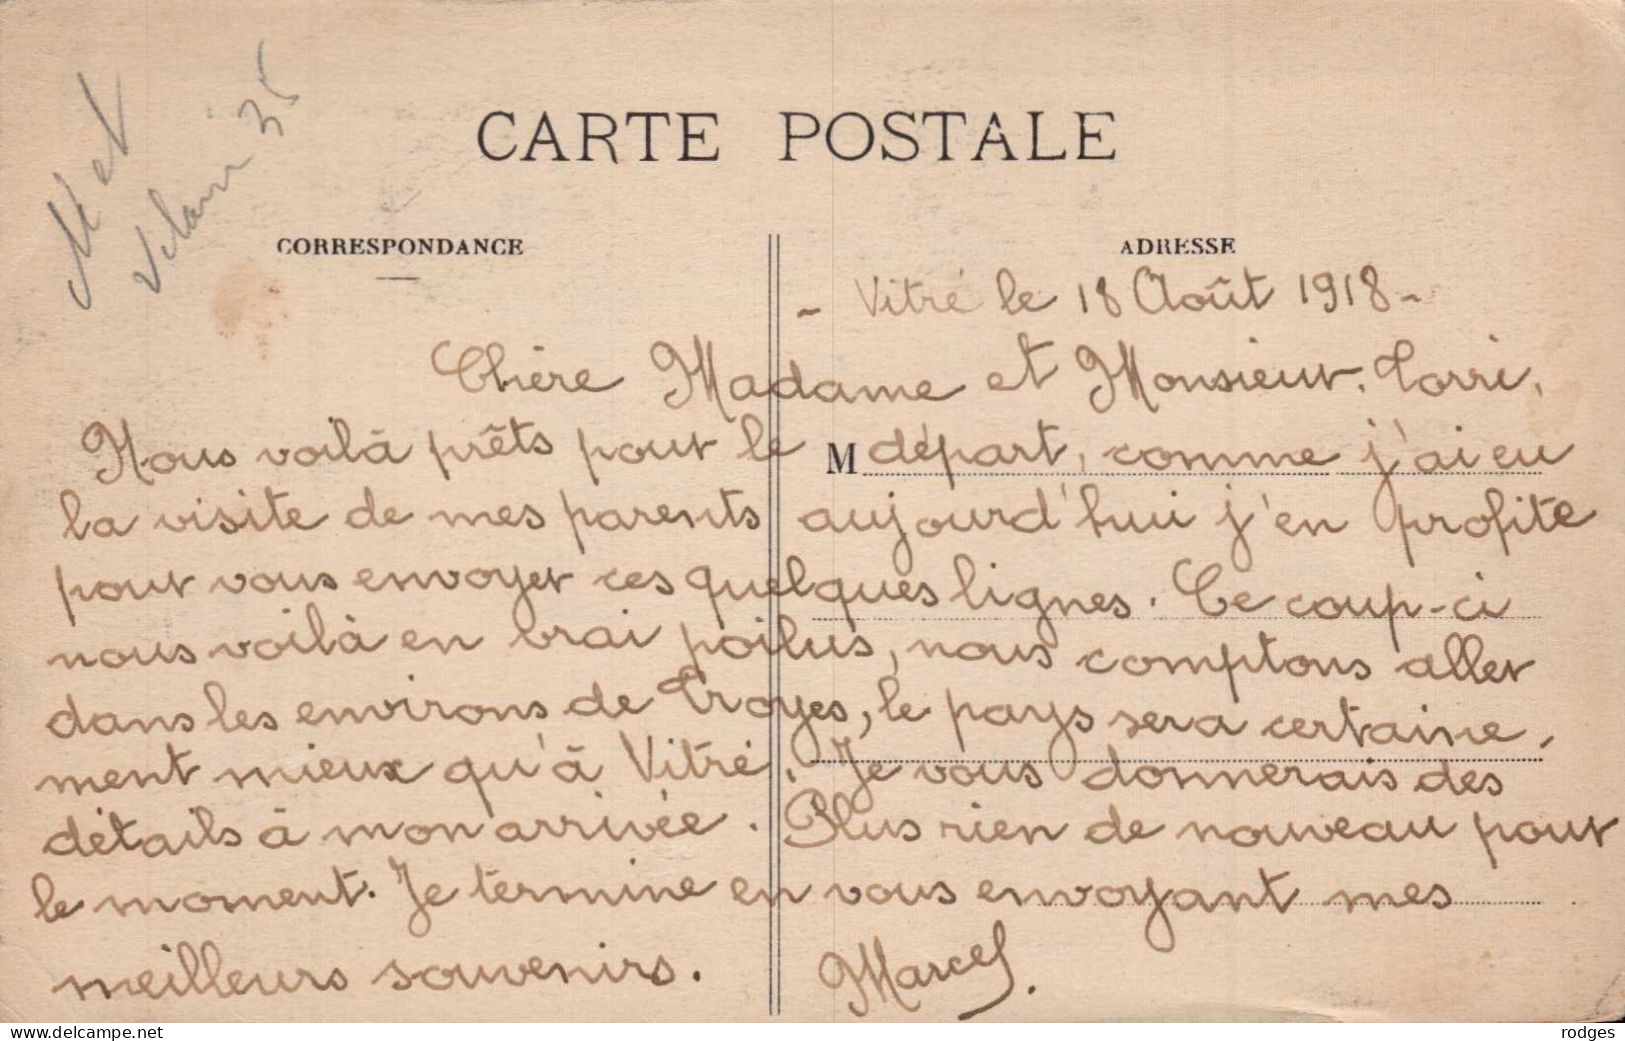 M et V
Vilaine 35
CARTE POSTALE
CORRESPONDANCE
ADRESSE
- Vitré le 18 Août 1918 -
Chère Madame et Monsieur. Torri,
Nous voilà prêts pour le M départ, comme j'ai eu
la visite de mes parents aujourd'hui j'en profite
pour vous envoyer ces quelques lignes. Ce coup-ci
nous voilà en vrai poilus, nous comptons aller
dans les environs de Troyes, le pays sera certaine,
ment mieux qu'à Vitré. Je vous donnerais des
détails à mon arrivée. Plus rien de nouveau pour
le moment. Je termine en vous envoyant mes
meilleurs souvenirs. Marcel.
delcampe.net
rodges